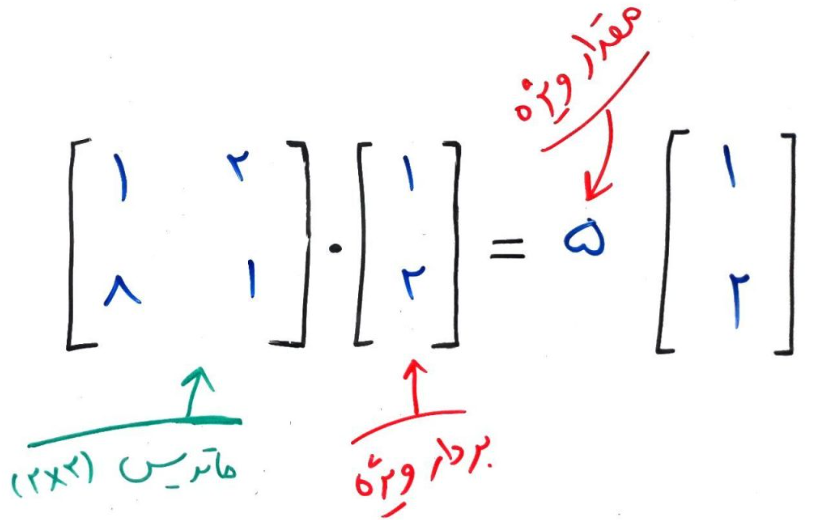 مقدار ویژه
[ ۱ ۲ ] . [ ۱ ] = ۵ [ ۱ ]
[ ۸ ۱ ] [ ۲ ] [ ۲ ]
ماتریس (۲×۲)
بردار ویژه